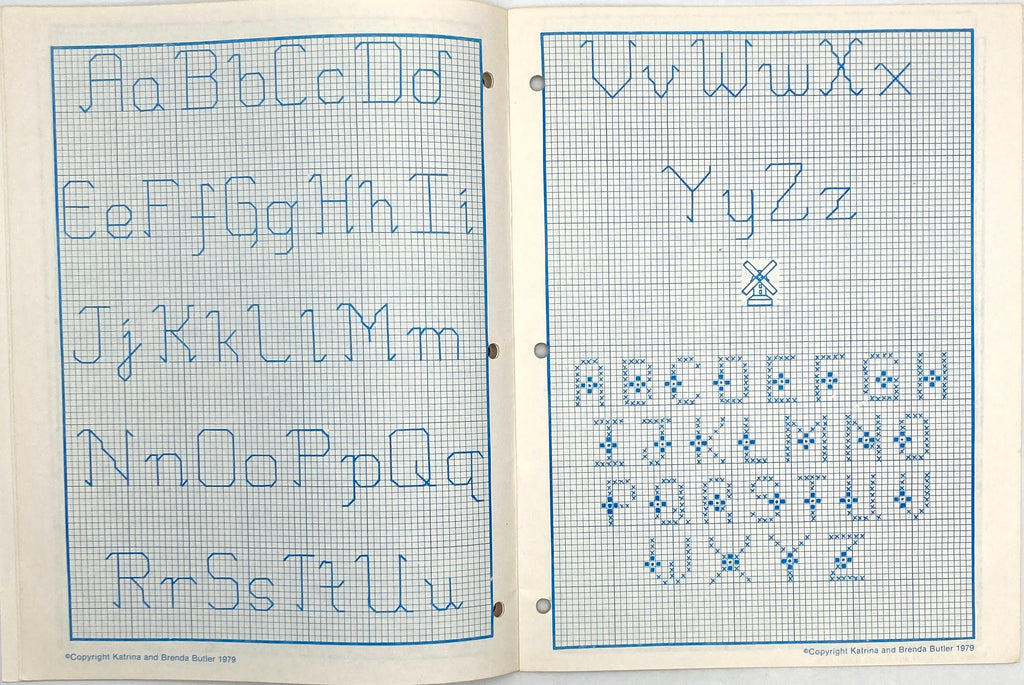 Aa Bb Cc Dd
Ee Ff Gg Hh Ii
Jj Kk Ll Mm
Nn Oo Pp Qq
Rr Ss Tt Uu
©Copyright Katrina and Brenda Butler 1979
Vv Ww Xx
Yy Zz
A B C D E F G H
I J K L M N O
P Q R S T U V
W X Y Z
©Copyright Katrina and Brenda Butler 1979